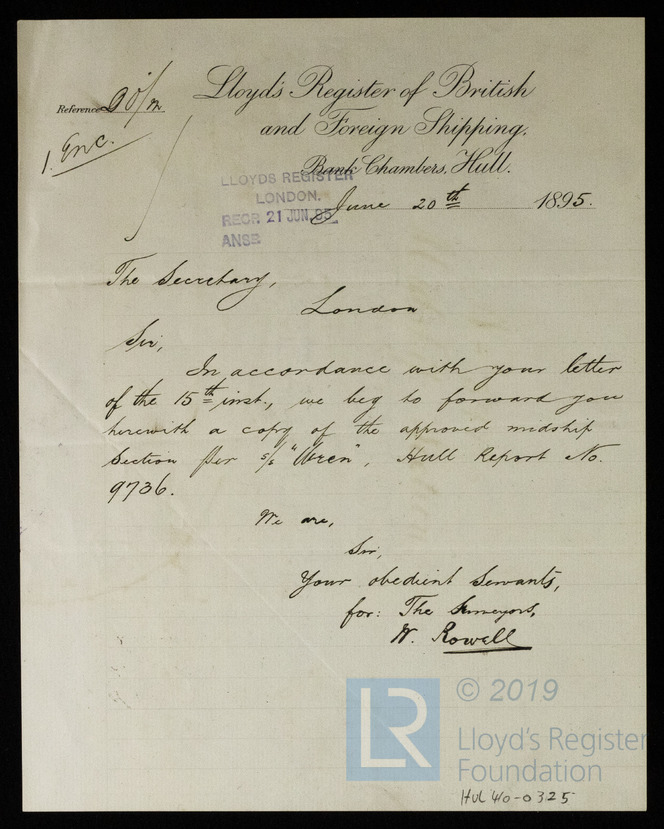 Lloyd's Register of British
and Foreign Shipping.
Reference
1. Enc.
Bank Chambers, Hull.
LLOYDS REGISTER
LONDON.
RECR 21 JUN. 95
ANSD
June 20th 1895.
The Secretary,
London
Sir,
In accordance with your letter
of the 15th inst., we beg to forward you
herewith a copy of the approved midship
Section per s/s "Wren", Hull Report No.
9736.
We are,
Sir,
Your obedient Servants,
for: The Surveyors,
W. Rowell
LR
© 2019
Lloyd's Register
Foundation
HUL 40-0325